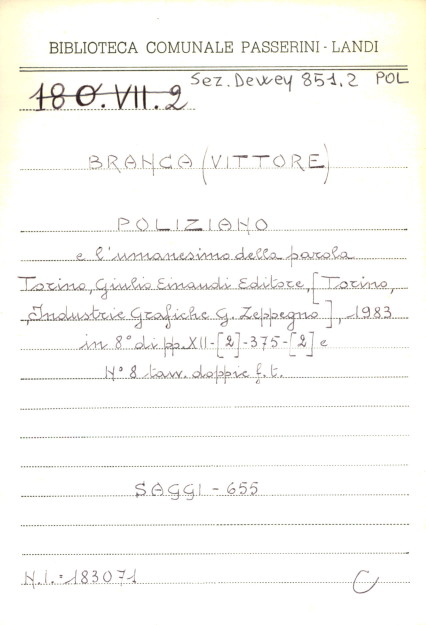 BIBLIOTECA COMUNALE PASSERINI - LANDI
Sez. Dewey 851.2 POL
180.VII.2
BRANCA (VITTORE)
POLIZIANO
e l'umanesimo della parola
Torino, Giulio Einaudi Editore, [Torino,
Industrie Grafiche G. Zeppegno], 1983
in 8° di pp. XII-[2]-375-[2] e
N° 8 tav. doppie f.t.
SAGGI - 655
N.I. = 183071
C